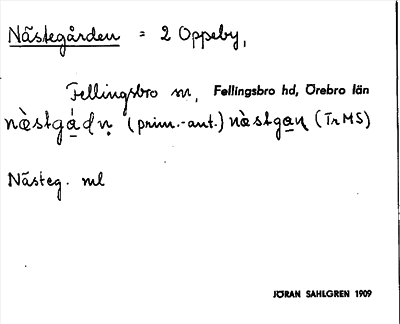 Nästegården = 2 Oppeby,
Fellingsbro sn, Fellingsbro hd, Örebro län
næ̀stgådn̥ (prim.-ant.) næ̀stgan (Tr MS)
Nästeg. ml
JÖRAN SAHLGREN 1909